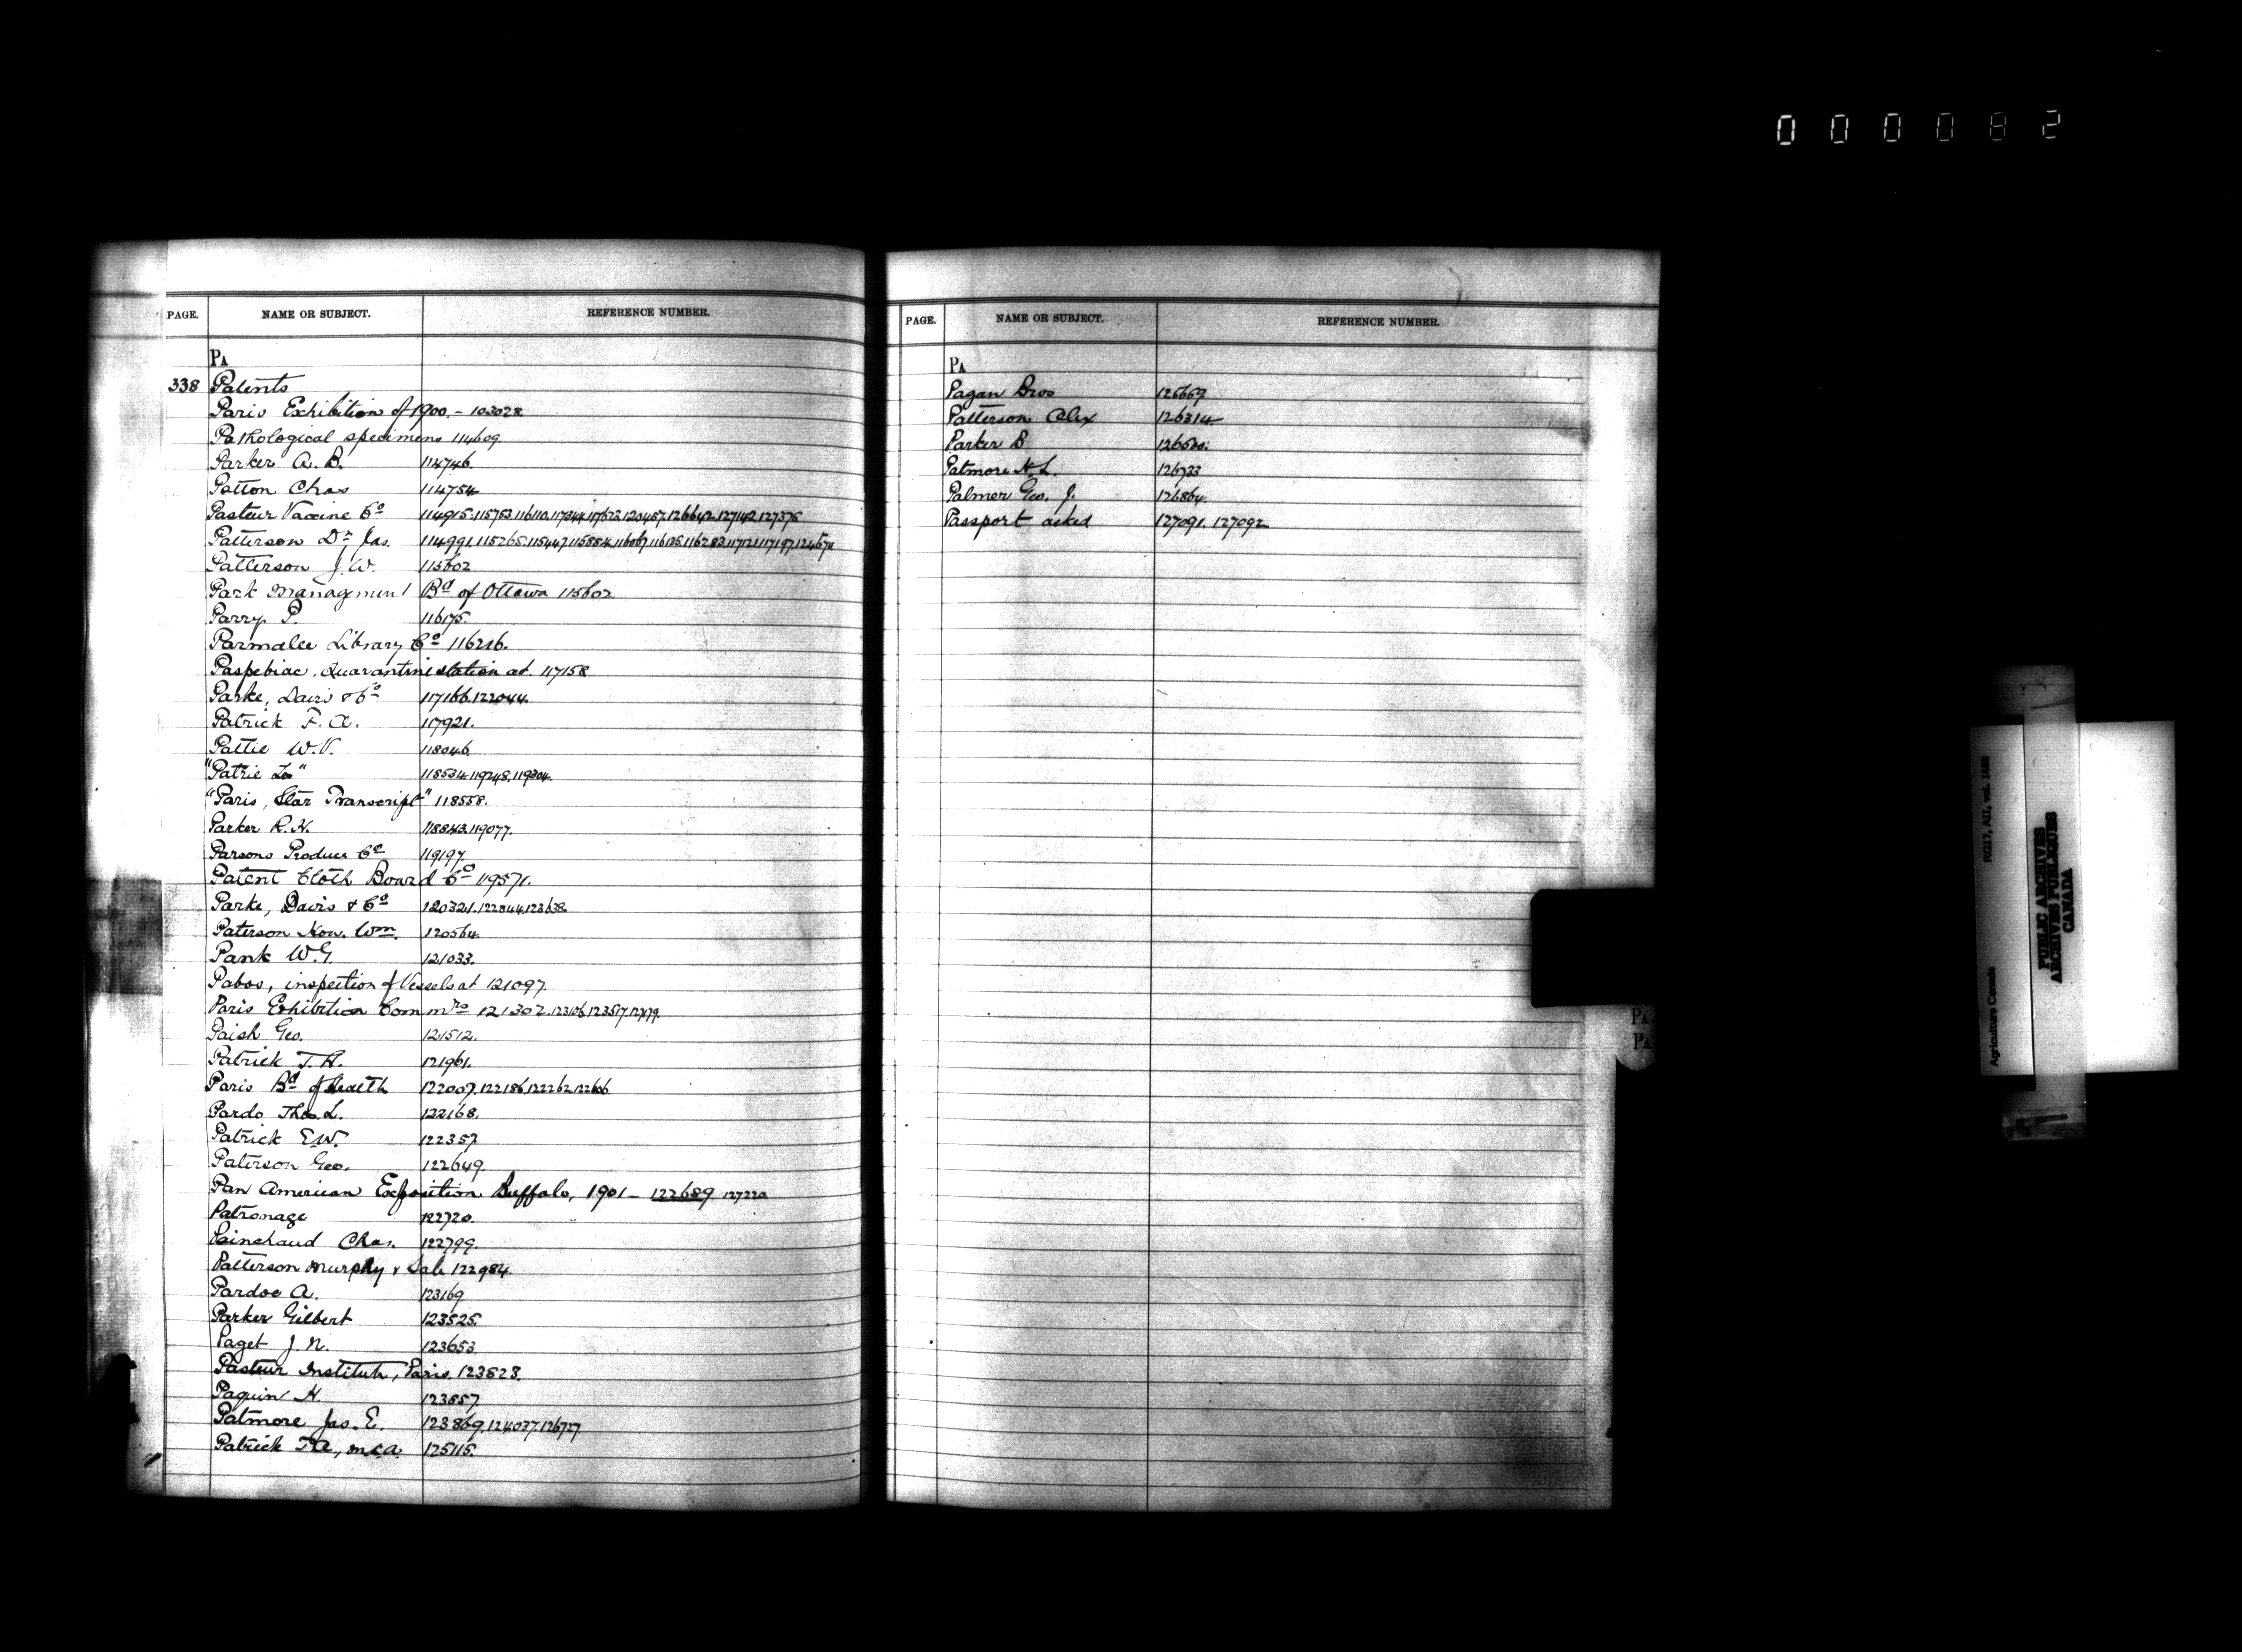 000082
PAGE. NAME OR SUBJECT. REFERENCE NUMBER.
PA
338 Patents
Paris Exhibition of 1900. – 103028
Pathological specimens 114609.
Parker A. B. 114746.
Patton Chas 114754
Pasteur Vaccine Co 114915. 115753. 116110. 117344. 117623. 120457. 126642. 127142. 127375
Patterson Dr Jas. 114991. 115265. 115447. 115884. 116067. 116135. 116283. 117121. 117197.
Patterson J. W. 115602
Park Managment Bd of Ottawa 115602
Parry P. 116175.
Parmalee Library Co 116216.
Paspebiac, Quarantine station at 117158
Parke, Davis & Co 117166. 122044.
Patrick F. A. 117921.
Pattie W. V. 118046
"Patrie La" 118534. 119248. 119304.
"Paris, Star Transcript" 118558.
Parker R. H. 118843. 119077.
Parsons Produce Co 119197
Patent Cloth Board Co 119571.
Parke, Davis & Co 120321. 122844. 123638.
Paterson Hon. Wm. 120564.
Pank W. G. 121033.
Pabos, inspection of Vessels at 121097.
Paris Exhibition Commrs 121302. 123106. 123517.
Paish Geo. 121512.
Patrick T. A. 121961.
Paris Bd of Health 122007. 122186. 122262.
Pardo Thos. L. 122168.
Patrick E. W. 122357.
Paterson Geo. 122649.
Pan American Exposition Buffalo, 1901 – 122689 127220.
Patronage 122720.
Painchaud Chas. 122799.
Patterson Murphy & Sale 122984.
Pardoe A. 123169
Parker Gilbert 123525.
Paget J. N. 123653.
Pasteur Institute, Paris. 123823.
Paquin H. 123857.
Patmore Jas. E. 123869. 124037. 126727.
Patrick T. A., M.L.A. 125115.
PAGE. NAME OR SUBJECT. REFERENCE NUMBER.
PA
Pagan Bros 125669.
Patterson Alex 126314
Parker B 126500.
Patmore H. L. 126733
Palmer Geo. J. 126864.
Passport asked 127091. 127092.
PA
PA
Agriculture Canada RG17, AII, vol. 1498
PUBLIC ARCHIVES
ARCHIVES PUBLIQUES
CANADA